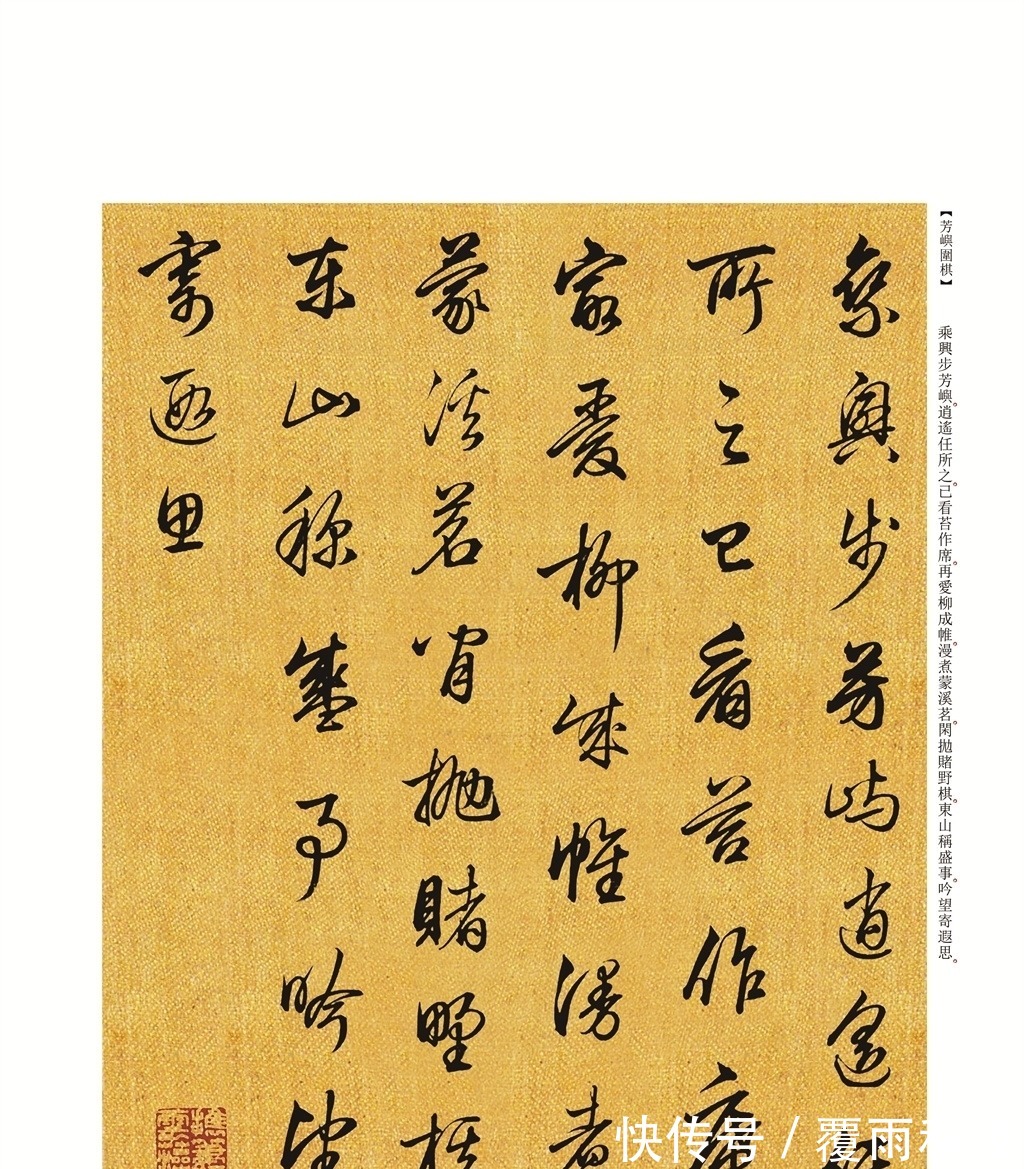 【芳嶼圍棋】 乘興步芳嶼。逍遙任所之。已看苔作席。再愛柳成帷。漫煮蒙溪茗。閑拋賭野棋。東山稱盛事。吟望寄遐思。
乘興步芳嶼逍遙
所之已看苔作席
最愛柳成帷漫煮
蒙溪茗閒拋賭野棋
東山稱盛事吟望
寄遐思
快传号 / 覆雨